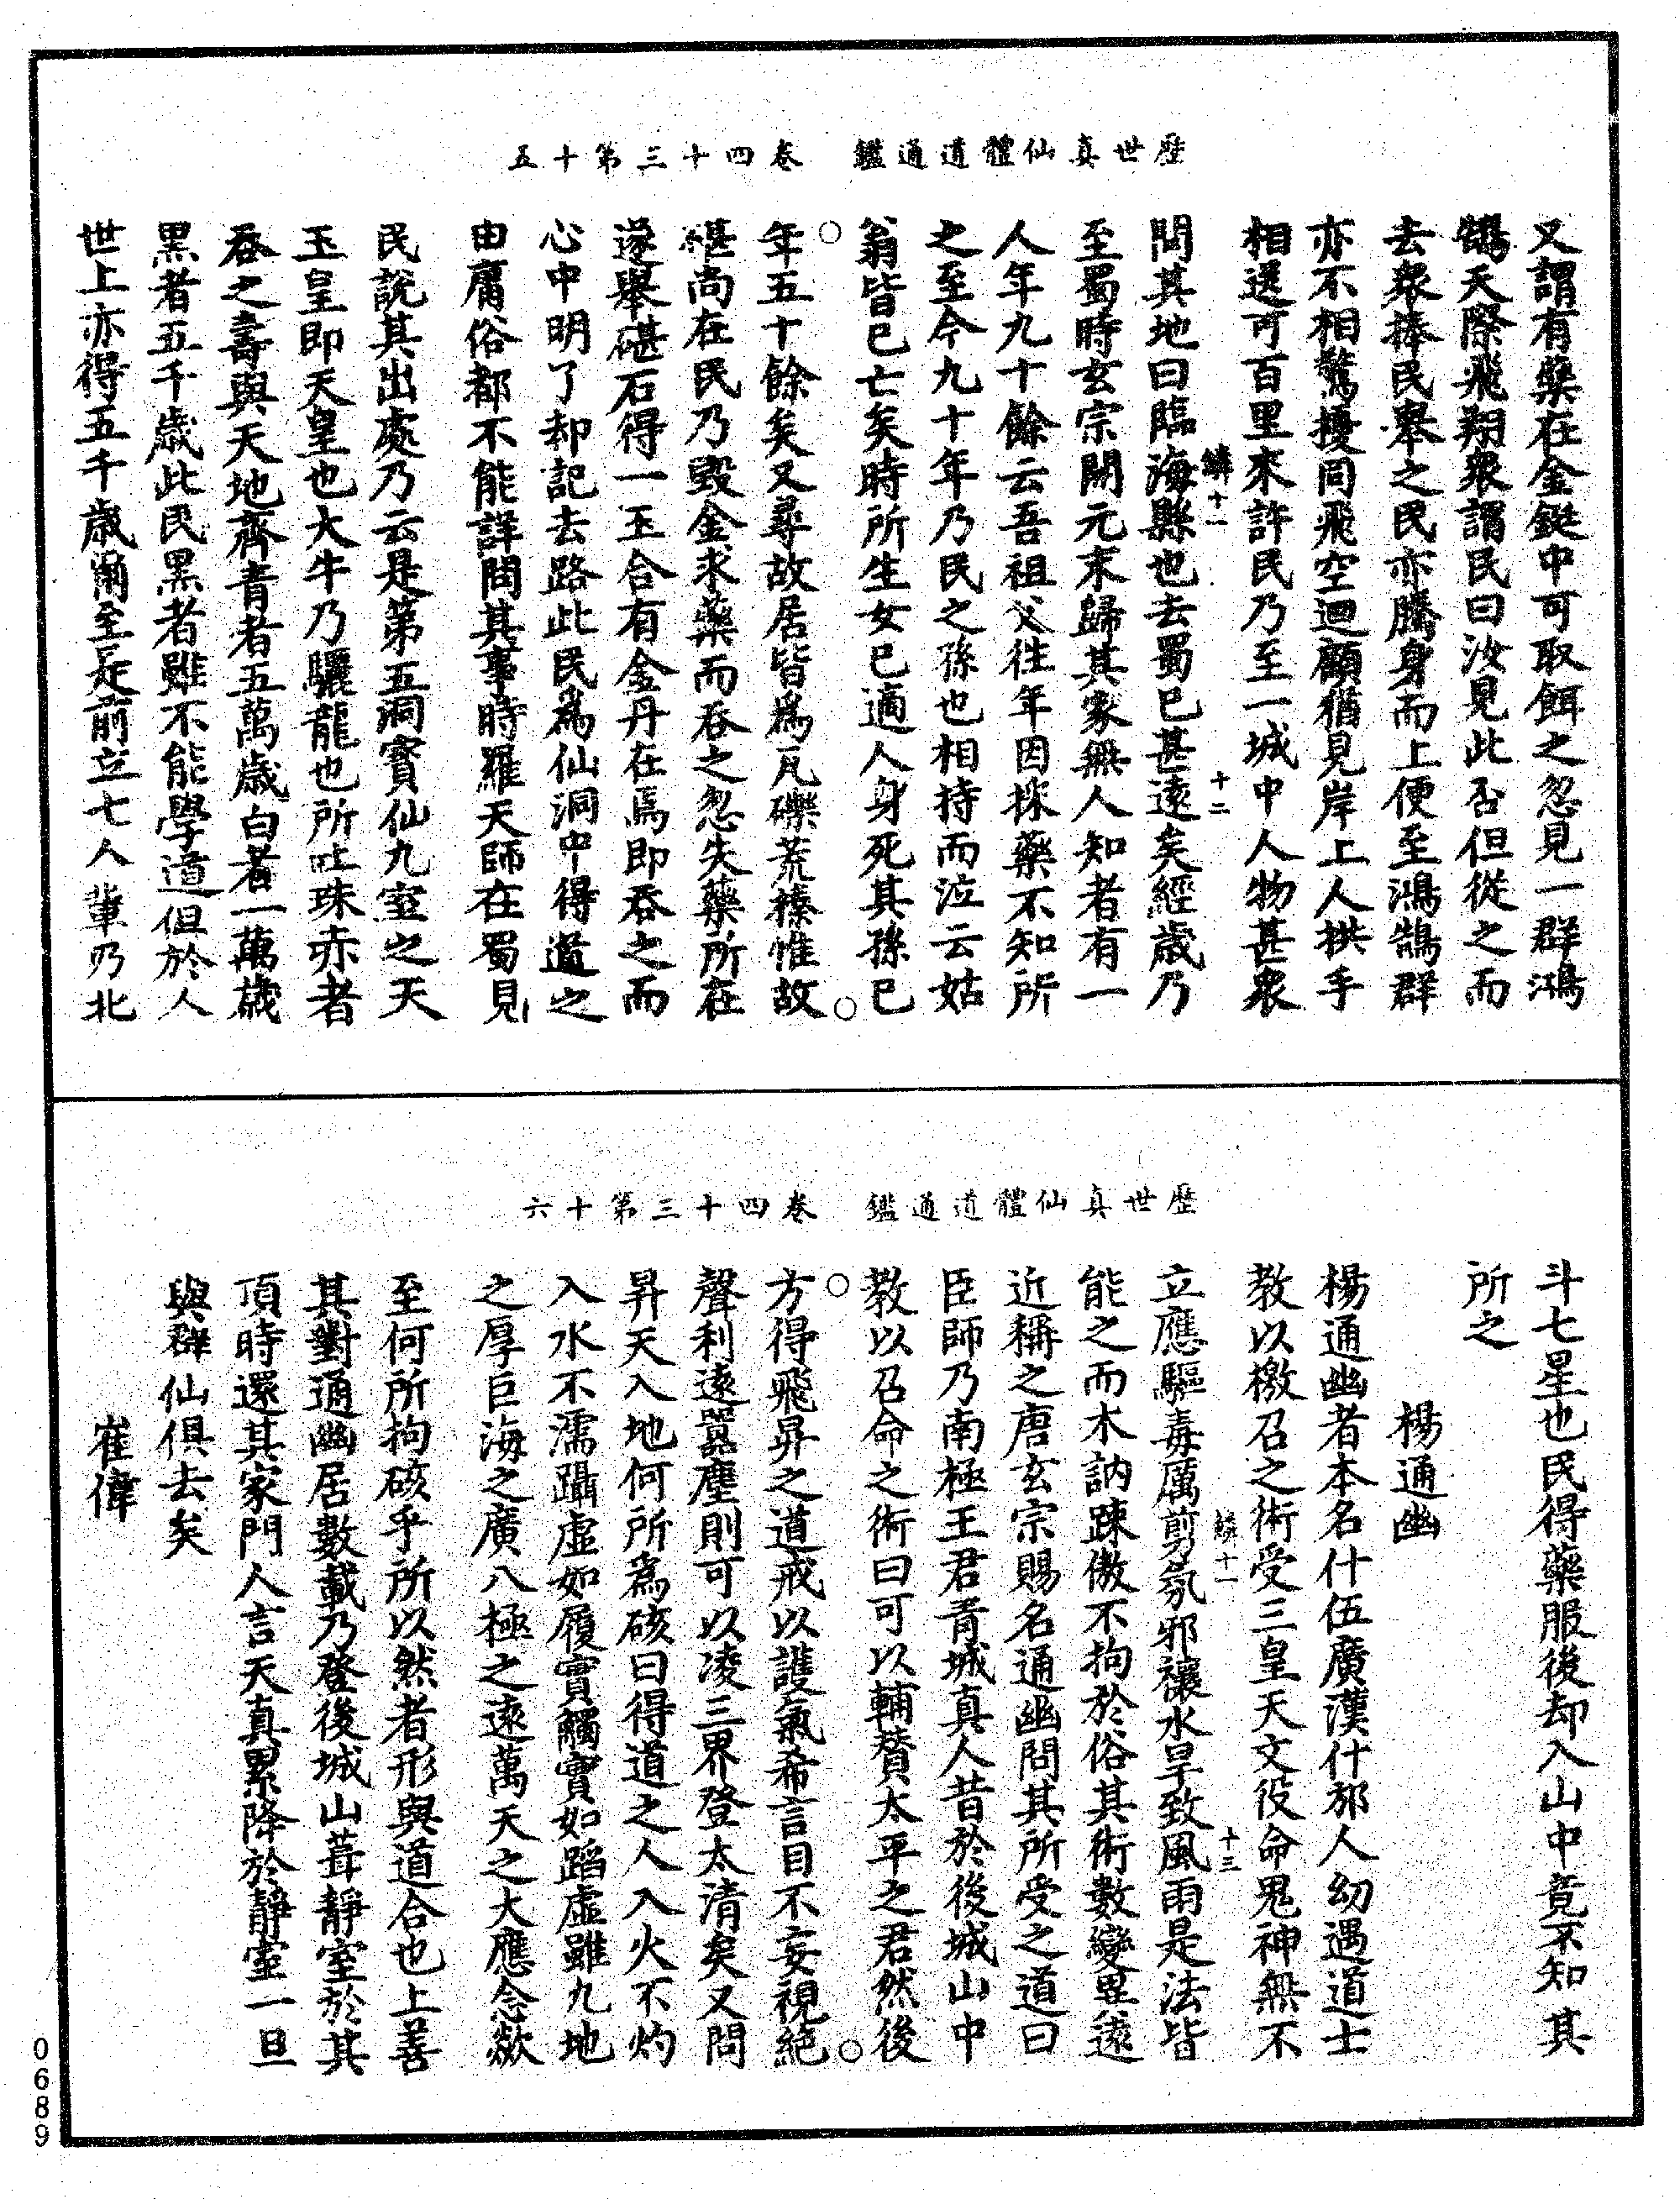 歷世真仙體道通鑑　卷四十三第十五
又謂有藥在金鋌中可取餌之忽見一群鴻
鵠天際飛翔衆謂民曰汝見此否但從之而
去衆捧民舉之民亦騰身而上便至鴻鵠群
亦不相驚擾同飛空迴顧猶見岸上人拱手
相送可百里來許民乃至一城中人物甚衆
鱗十一
十二
問其地曰臨海縣也去蜀已甚遠矣經歲乃
至蜀時玄宗開元末歸其家無人知者有一
人年九十餘云吾祖父往年因採藥不知所
之至今九十年乃民之孫也相持而泣云姑
翁皆已亡矣時所生女已適人身死其孫已
○
○
年五十餘矣又尋故居皆爲瓦礫荒榛惟故
碪尚在民乃毀金求藥而吞之忽失藥所在
遂舉碪石得一玉合有金丹在焉即吞之而
心中明了却記去路此民爲仙洞中得道之
由庸俗都不能詳問其事時羅天師在蜀見
民說其出處乃云是第五洞寳仙九室之天
玉皇即天皇也大牛乃驪龍也所吐珠赤者
吞之壽與天地齊青者五萬歲白者一萬歲
黑者五千歲此民黑者雖不能學道但於人
世上亦得五千歲爾至是前立七人輩乃北
歷世真仙體道通鑑　卷四十三第十六
斗七星也民得藥服後却入山中竟不知其
所之
楊通幽
楊通幽者本名什伍廣漢什邡人幼遇道士
教以檄召之術受三皇天文役命鬼神無不
鱗十一
十三
立應驅毒厲剪氛邪禳水旱致風雨是法皆
能之而木訥踈傲不拘於俗其術數變異遠
近稱之唐玄宗賜名通幽問其所受之道曰
臣師乃南極王君青城真人昔於後城山中
教以召命之術曰可以輔贊太平之君然後
○
○
方得飛昇之道戒以護氣希言目不妄視絕
聲利遠囂塵則可以凌三界登太清矣又問
昇天入地何所爲硋曰得道之人入火不灼
入水不濡躡虛如履實觸實如蹈虛雖九地
之厚巨海之廣八極之遠萬天之大應念歘
至何所拘硋乎所以然者形與道合也上善
其對通幽居數載乃登後城山葺靜室於其
頂時還其家門人言天真累降於靜室一旦
與群仙俱去矣
崔偉
0689